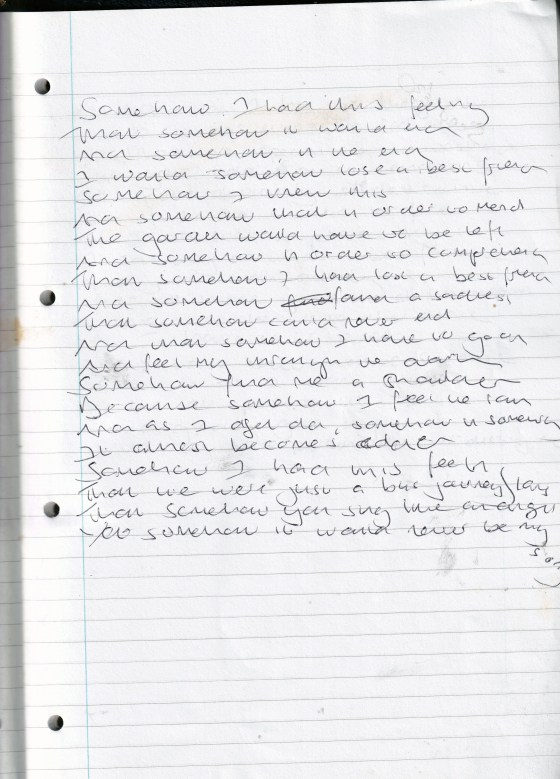 Somehow I had this feeling
That somehow it would end
And somehow, in the end
I would somehow lose a best friend
Somehow I knew this
And somehow that in order to mend
The garden would have to be left
And somehow in order to comprehend
That somehow I had lost a best friend
And somehow found a sadness
That somehow could never end
And that somehow I have to go on
And feel my through the
Somehow find me a shoulder
Because somehow I feel the
And as I , somehow
It almost becomes
Somehow I had this feeling
That we were just a bus journey long
That somehow you sing like an angel
Yet somehow it would never be my
song